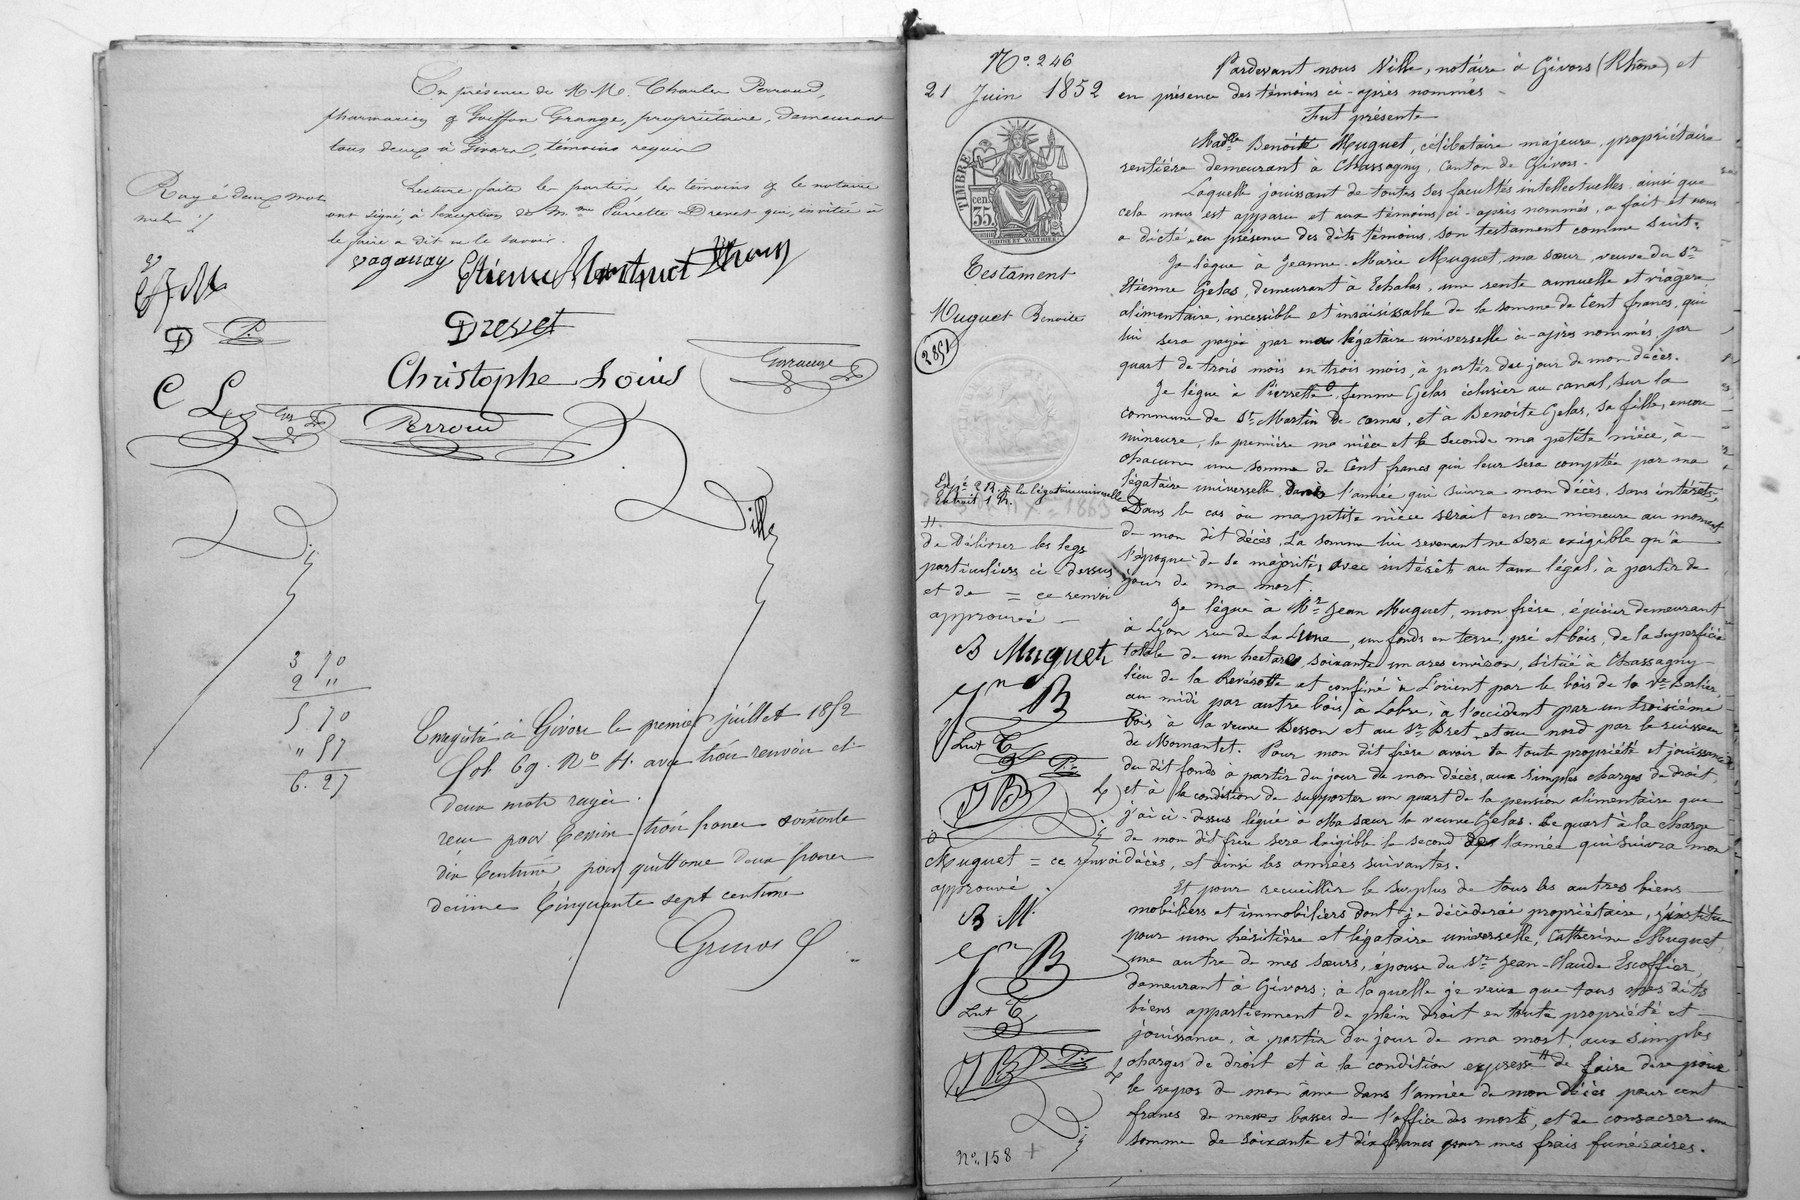 En présence de M.M. Charles Perroud,
pharmacien & Goiffon Grange, propriétaire, demeurant
tous deux à Givors, témoins requis
Lecture faite les parties les témoins & le notaire
ont signé, à l'exception de Mme Pierrette Drevet qui, invitée à
le faire a dit ne le savoir.
Rayé deux mots
nuls
Vaganay Etienne Martinet
Drevet
Christophe Louis
Perroud
Ville
D
C L
3 70
2 "
5 70
" 57
6. 27
Enregistré à Givors le premier juillet 1852
fol. 69. No 4. avec trois renvois et
deux mots rayés.
reçu pour cession trois francs soixante
dix centimes pour quittance deux francs
décime cinquante sept centimes
No. 246
21 Juin 1852
TIMBRE
35 cen.
Testament
Muguet Benoite
2851
Exp.é 2 R. à la légataire universelle
Extrait 1 R.
de délivrer les legs
particuliers ci-dessus
et de = ce renvoi
approuvé
B Muguet
Jn B
Lut
JB
Muguet = ce renvoi
approuvé
B. M.
Jn B
Lut
JB
No. 158
Pardevant nous Ville, notaire à Givors (Rhône) et
en présence des témoins ci-après nommés
Fut présente
Madlle Benoite Muguet, célibataire majeure, propriétaire
rentière demeurant à Chassagny, canton de Givors.
Laquelle jouissant de toutes ses facultés intellectuelles ainsi que
cela nous est apparu et aux témoins ci-après nommés, a fait et nous
a dicté, en présence des dits témoins, son testament comme suit.
Je lègue à Jeanne-Marie Muguet, ma sœur, veuve du Sr
Etienne Gelas, demeurant à Echalas, une rente annuelle et viagère
alimentaire, incessible et insaisissable de la somme de Cent francs, qui
lui sera payée par ma légataire universelle ci-après nommée, par
quart de trois mois en trois mois, à partir du jour de mon décès.
Je lègue à Pierrette, femme Gelas éclusier au canal, sur la
commune de St Martin de Cornas, et à Benoite Gelas, sa fille, encore
mineure, la première ma nièce et la seconde ma petite nièce, à
chacune une somme de Cent francs qui leur sera comptée par ma
légataire universelle dans l'année qui suivra mon décès, sans intérêts.
Dans le cas où ma petite nièce serait encore mineure au moment
de mon dit décès, la somme lui revenant ne sera exigible qu'à
l'époque de sa majorité, avec intérêts au taux légal, à partir du
jour de ma mort.
Je lègue à Mr Jean Muguet, mon frère, épicier demeurant
à Lyon rue de La Lune, un fonds en terre, pré et bois, de la superficie
totale de un hectare, soixante un ares environ, situé à Chassagny
lieu de la Revésotte et confiné à l'orient par le bois de la Ve Berlier,
au midi par autre bois à Lobre, à l'occident par un troisième
bois à la veuve Besson et au Sr Bret, et au nord par le ruisseau
de Mornantet. Pour mon dit frère avoir la toute propriété et jouissance
du dit fonds à partir du jour de mon décès, aux simples charges de droit
et à la condition de supporter un quart de la pension alimentaire que
j'ai ci-dessus légué à Ma sœur la veuve Gelas. Le quart à la charge
de mon dit frère sera exigible le second de l'année qui suivra mon
décès, et ainsi les années suivantes.
Et pour recueillir le surplus de tous les autres biens
mobiliers et immobiliers dont je décèderai propriétaire, j'institue
pour mon héritière et légataire universelle, Catherine Muguet,
une autre de mes sœurs, épouse du Sr Jean-Claude Escoffier,
demeurant à Givors; à laquelle je veux que tous mes dits
biens appartiennent de plein droit en toute propriété et
jouissance, à partir du jour de ma mort, aux simples
charges de droit et à la condition expresse de faire dire pour
le repos de mon âme dans l'année de mon décès pour cent
francs de messes basses de l'office des morts, et de consacrer une
somme de soixante et dix francs pour mes frais funéraires.